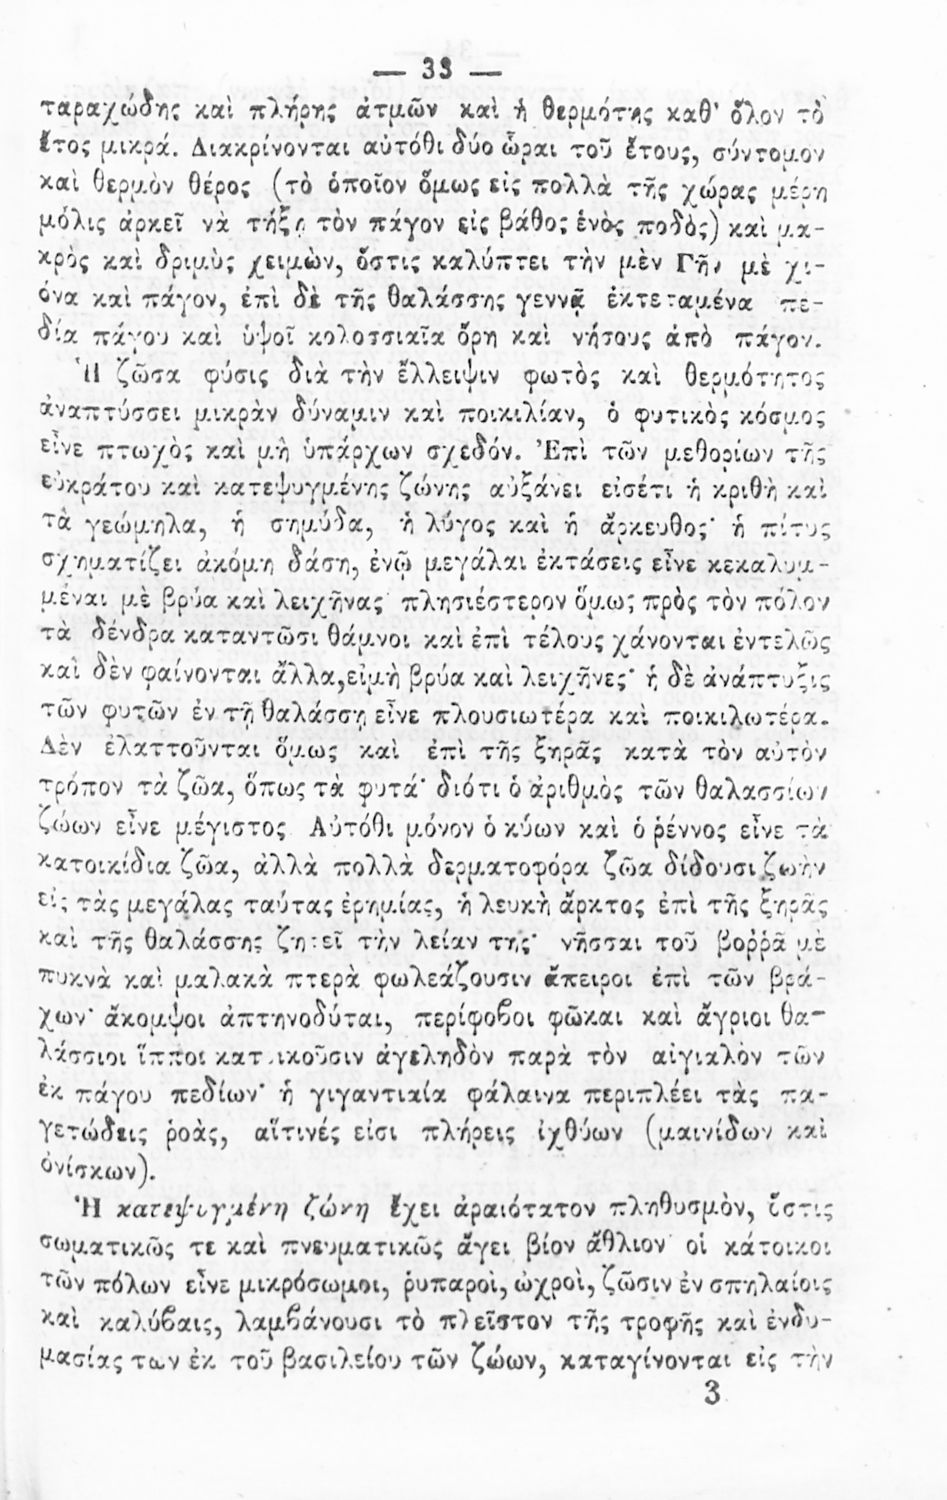 — 33 —
ταραχώδης καὶ πλήρης ἀτμῶν καὶ ἡ θερμότης καθ' ὅλον τὸ
ἔτος μικρά. Διακρίνονται αὐτόθι δύο ὧραι τοῦ ἔτους, σύντομον
καὶ θερμὸν θέρος (τὸ ὁποῖον ὅμως εἰς πολλὰ τῆς χώρας μέρη
μόλις ἀρκεῖ νὰ τήξῃ τὸν πάγον εἰς βάθος ἑνὸς ποδὸς) καὶ μα-
κρὸς καὶ δριμὺς χειμὼν, ὅστις καλύπτει τὴν μὲν Γῆν μὲ χι-
όνα καὶ πάγον, ἐπὶ δὲ τῆς θαλάσσης γεννᾷ ἐκτεταμένα πε-
δία πάγου καὶ ὑψοῖ κολοσσιαῖα ὄρη καὶ νήσους ἀπὸ πάγον.
Ἡ ζῶσα φύσις διὰ τὴν ἔλλειψιν φωτὸς καὶ θερμότητος
ἀναπτύσσει μικρὰν δύναμιν καὶ ποικιλίαν, ὁ φυτικὸς κόσμος
εἶνε πτωχὸς καὶ μὴ ὑπάρχων σχεδόν. Ἐπὶ τῶν μεθορίων τῆς
εὐκράτου καὶ κατεψυγμένης ζώνης αὐξάνει εἰσέτι ἡ κριθὴ καὶ
τὰ γεώμηλα, ἡ σημύδα, ἡ λύγος καὶ ἡ ἄρκευθος· ἡ πίτυς
σχηματίζει ἀκόμη δάση, ἐνῷ μεγάλαι ἐκτάσεις εἶνε κεκαλυμ-
μέναι μὲ βρύα καὶ λειχῆνας· πλησιέστερον ὅμως πρὸς τὸν πόλον
τὰ δένδρα καταντῶσι θάμνοι καὶ ἐπὶ τέλους χάνονται ἐντελῶς
καὶ δὲν φαίνονται ἄλλα, εἰμὴ βρύα καὶ λειχῆνες· ἡ δὲ ἀνάπτυξις
τῶν φυτῶν ἐν τῇ θαλάσσῃ εἶνε πλουσιωτέρα καὶ ποικιλωτέρα.
Δὲν ἐλαττοῦνται ὅμως καὶ ἐπὶ τῆς ξηρᾶς κατὰ τὸν αὐτὸν
τρόπον τὰ ζῶα, ὅπως τὰ φυτά· διότι ὁ ἀριθμὸς τῶν θαλασσίων
ζώων εἶνε μέγιστος. Αὐτόθι μόνον ὁ κύων καὶ ὁ ῥέννος εἶνε τὰ
κατοικίδια ζῶα, ἀλλὰ πολλὰ δερματοφόρα ζῶα δίδουσι ζωὴν
εἰς τὰς μεγάλας ταύτας ἐρημίας, ἡ λευκὴ ἄρκτος ἐπὶ τῆς ξηρᾶς
καὶ τῆς θαλάσσης ζητεῖ τὴν λείαν της· νῆσσαι τοῦ βοῤῥᾶ μὲ
πυκνὰ καὶ μαλακὰ πτερὰ φωλεάζουσιν ἄπειροι ἐπὶ τῶν βρά-
χων· ἄκομψοι ἀπτηνοδύται, περίφοβοι φῶκαι καὶ ἄγριοι θα-
λάσσιοι ἵπποι κατοικοῦσιν ἀγεληδὸν παρὰ τὸν αἰγιαλὸν τῶν
ἐκ πάγου πεδίων· ἡ γιγαντιαία φάλαινα περιπλέει τὰς πα-
γετώδεις ῥοὰς, αἵτινές εἰσι πλήρεις ἰχθύων (μαινίδων καὶ
ὀνίσκων).
Ἡ κατεψυγμένη ζώνη ἔχει ἀραιότατον πληθυσμὸν, ὅστις
σωματικῶς τε καὶ πνευματικῶς ἄγει βίον ἄθλιον· οἱ κάτοικοι
τῶν πόλων εἶνε μικρόσωμοι, ῥυπαροὶ, ὠχροὶ, ζῶσιν ἐν σπηλαίοις
καὶ καλύβαις, λαμβάνουσι τὸ πλεῖστον τῆς τροφῆς καὶ ἐνδυ-
μασίας των ἐκ τοῦ βασιλείου τῶν ζώων, καταγίνονται εἰς τὴν
3